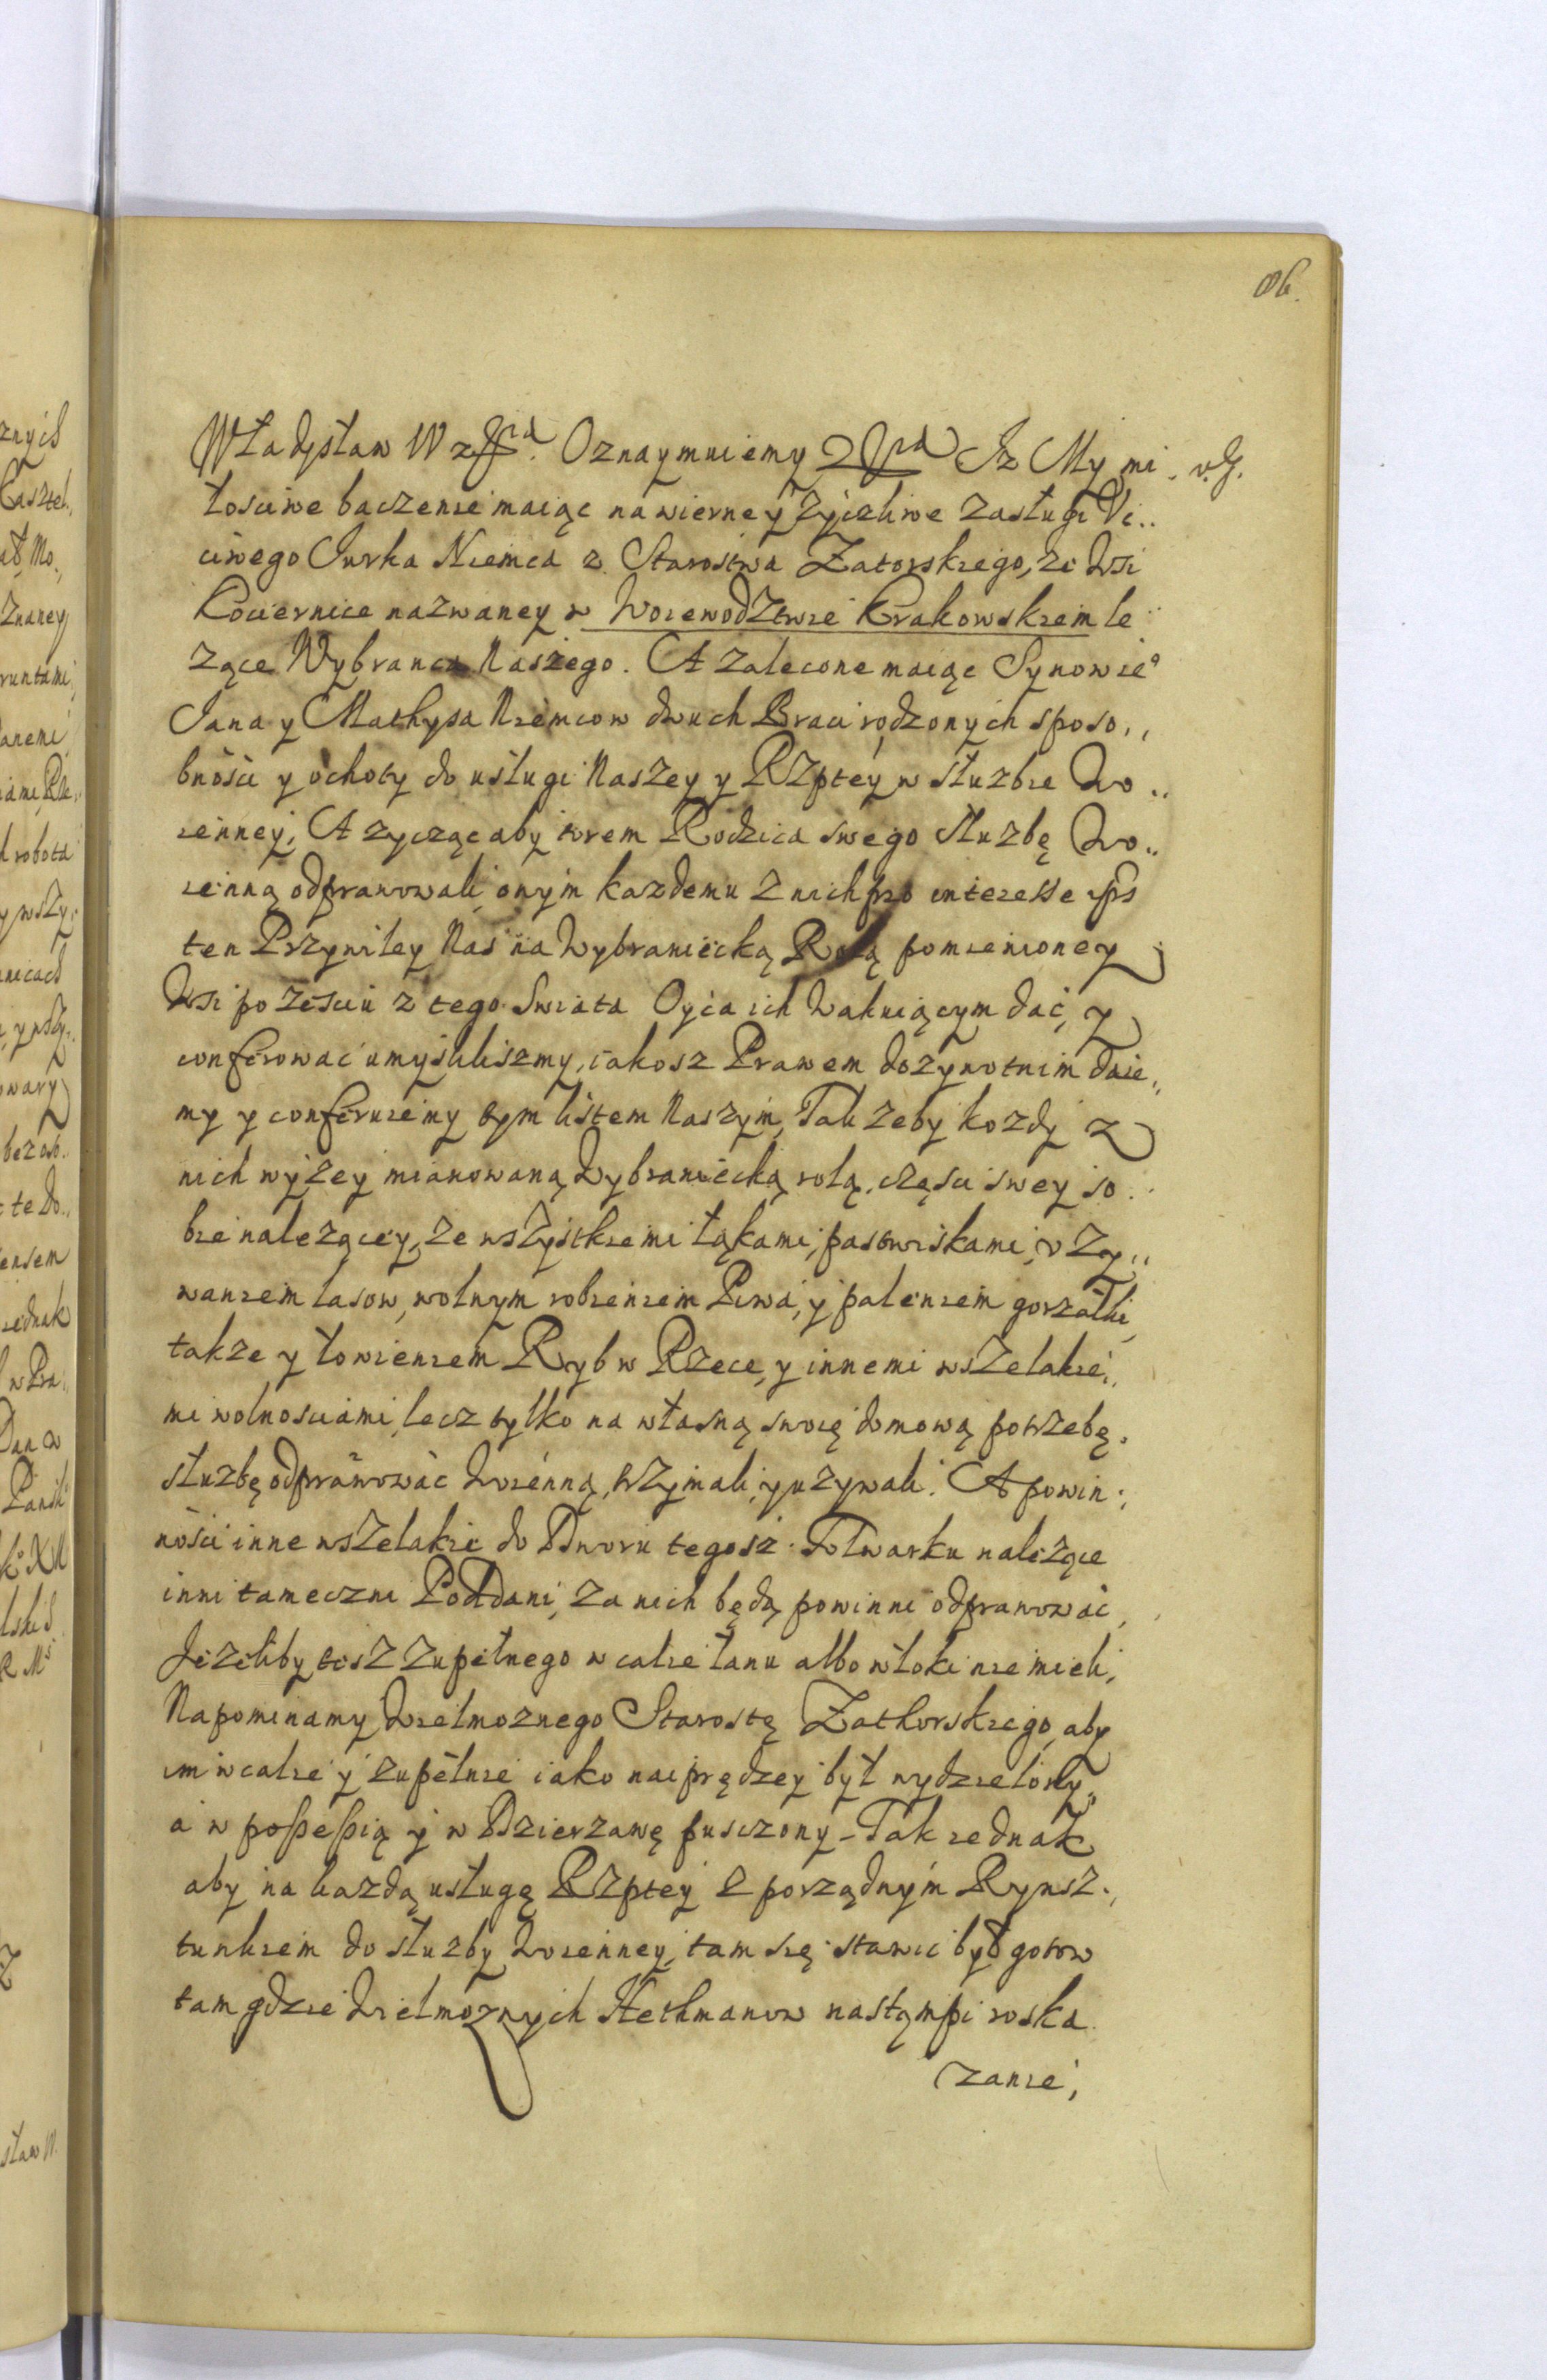 86.
Władysław IV Oznaymuiemy Iz My mi
łosciwe baczenie maiąc na wierne y życzliwe zasługi Vc..
ciwego Jurka Niemca z Starostwa Zatorskiego, ze wsi
Kociernice nazwaney w Woiewodztwie Krakowskiem le
zące Wybranca Naszego. A zalecone maiąc Synow ie°
Jana y Mathysa Niemcow dwuch Braci rodzonych sposo,,
bnosci y ochoty do usługi Naszey y RZptey w służbie Wo..
ienney, A zycząc aby torem Rodzica swego służbę Wo..
ienną odprawowali, onym kazdemu z nich pro interesse ips
ten Przywiley Nas na Wybraniecką Rolą pomienioney
Wsi po zesciu z tego Swiata Oyca ich wakuiącym dać, y
conferować umyslilismy, iakosz Prawem dozywotnim daie,,
my y conferuiemy tym listem Naszym, Tak żeby kozdy z
nich wyżey mianowaną Wybraniecką rolą, częsci swey so
bie nalezącey, ze wszystkiemi łąkami, pastwiskami, vzy,,
waniem lasow, wolnym robieniem Piwa, y paleniem gorzałki,
takze y łowieniem Ryb w Rzece, y innemi wszelakie,,
mi wolnosciami, lecz tylko na własną swoię domową potrzebę,
służbę odprawować woienną, trzymali, y uzywali. A powin,,
nosci inne wszelakie do Dworu tegosz Folwarku nalezące
inni tameczni Poddani, za nich będą powinni odprawować,
Jeżeliby tesz zupełnego w calie łanu albo włoki nie mieli,
Napominamy Wielmoznego Starostę Zathorskiego, aby
im w calie y zupełnie iako naiprędzey był wydzielony,
a w possessią y w Dzierzawę pusczony – Tak iednak
aby na kazdą usługę RZptey z porządnym Rynsz,
tunkiem do służby woienney, tam się stawić był gotow
tam gdzie Wielmoznych Hethmanow nastąmpi roska
zanie,